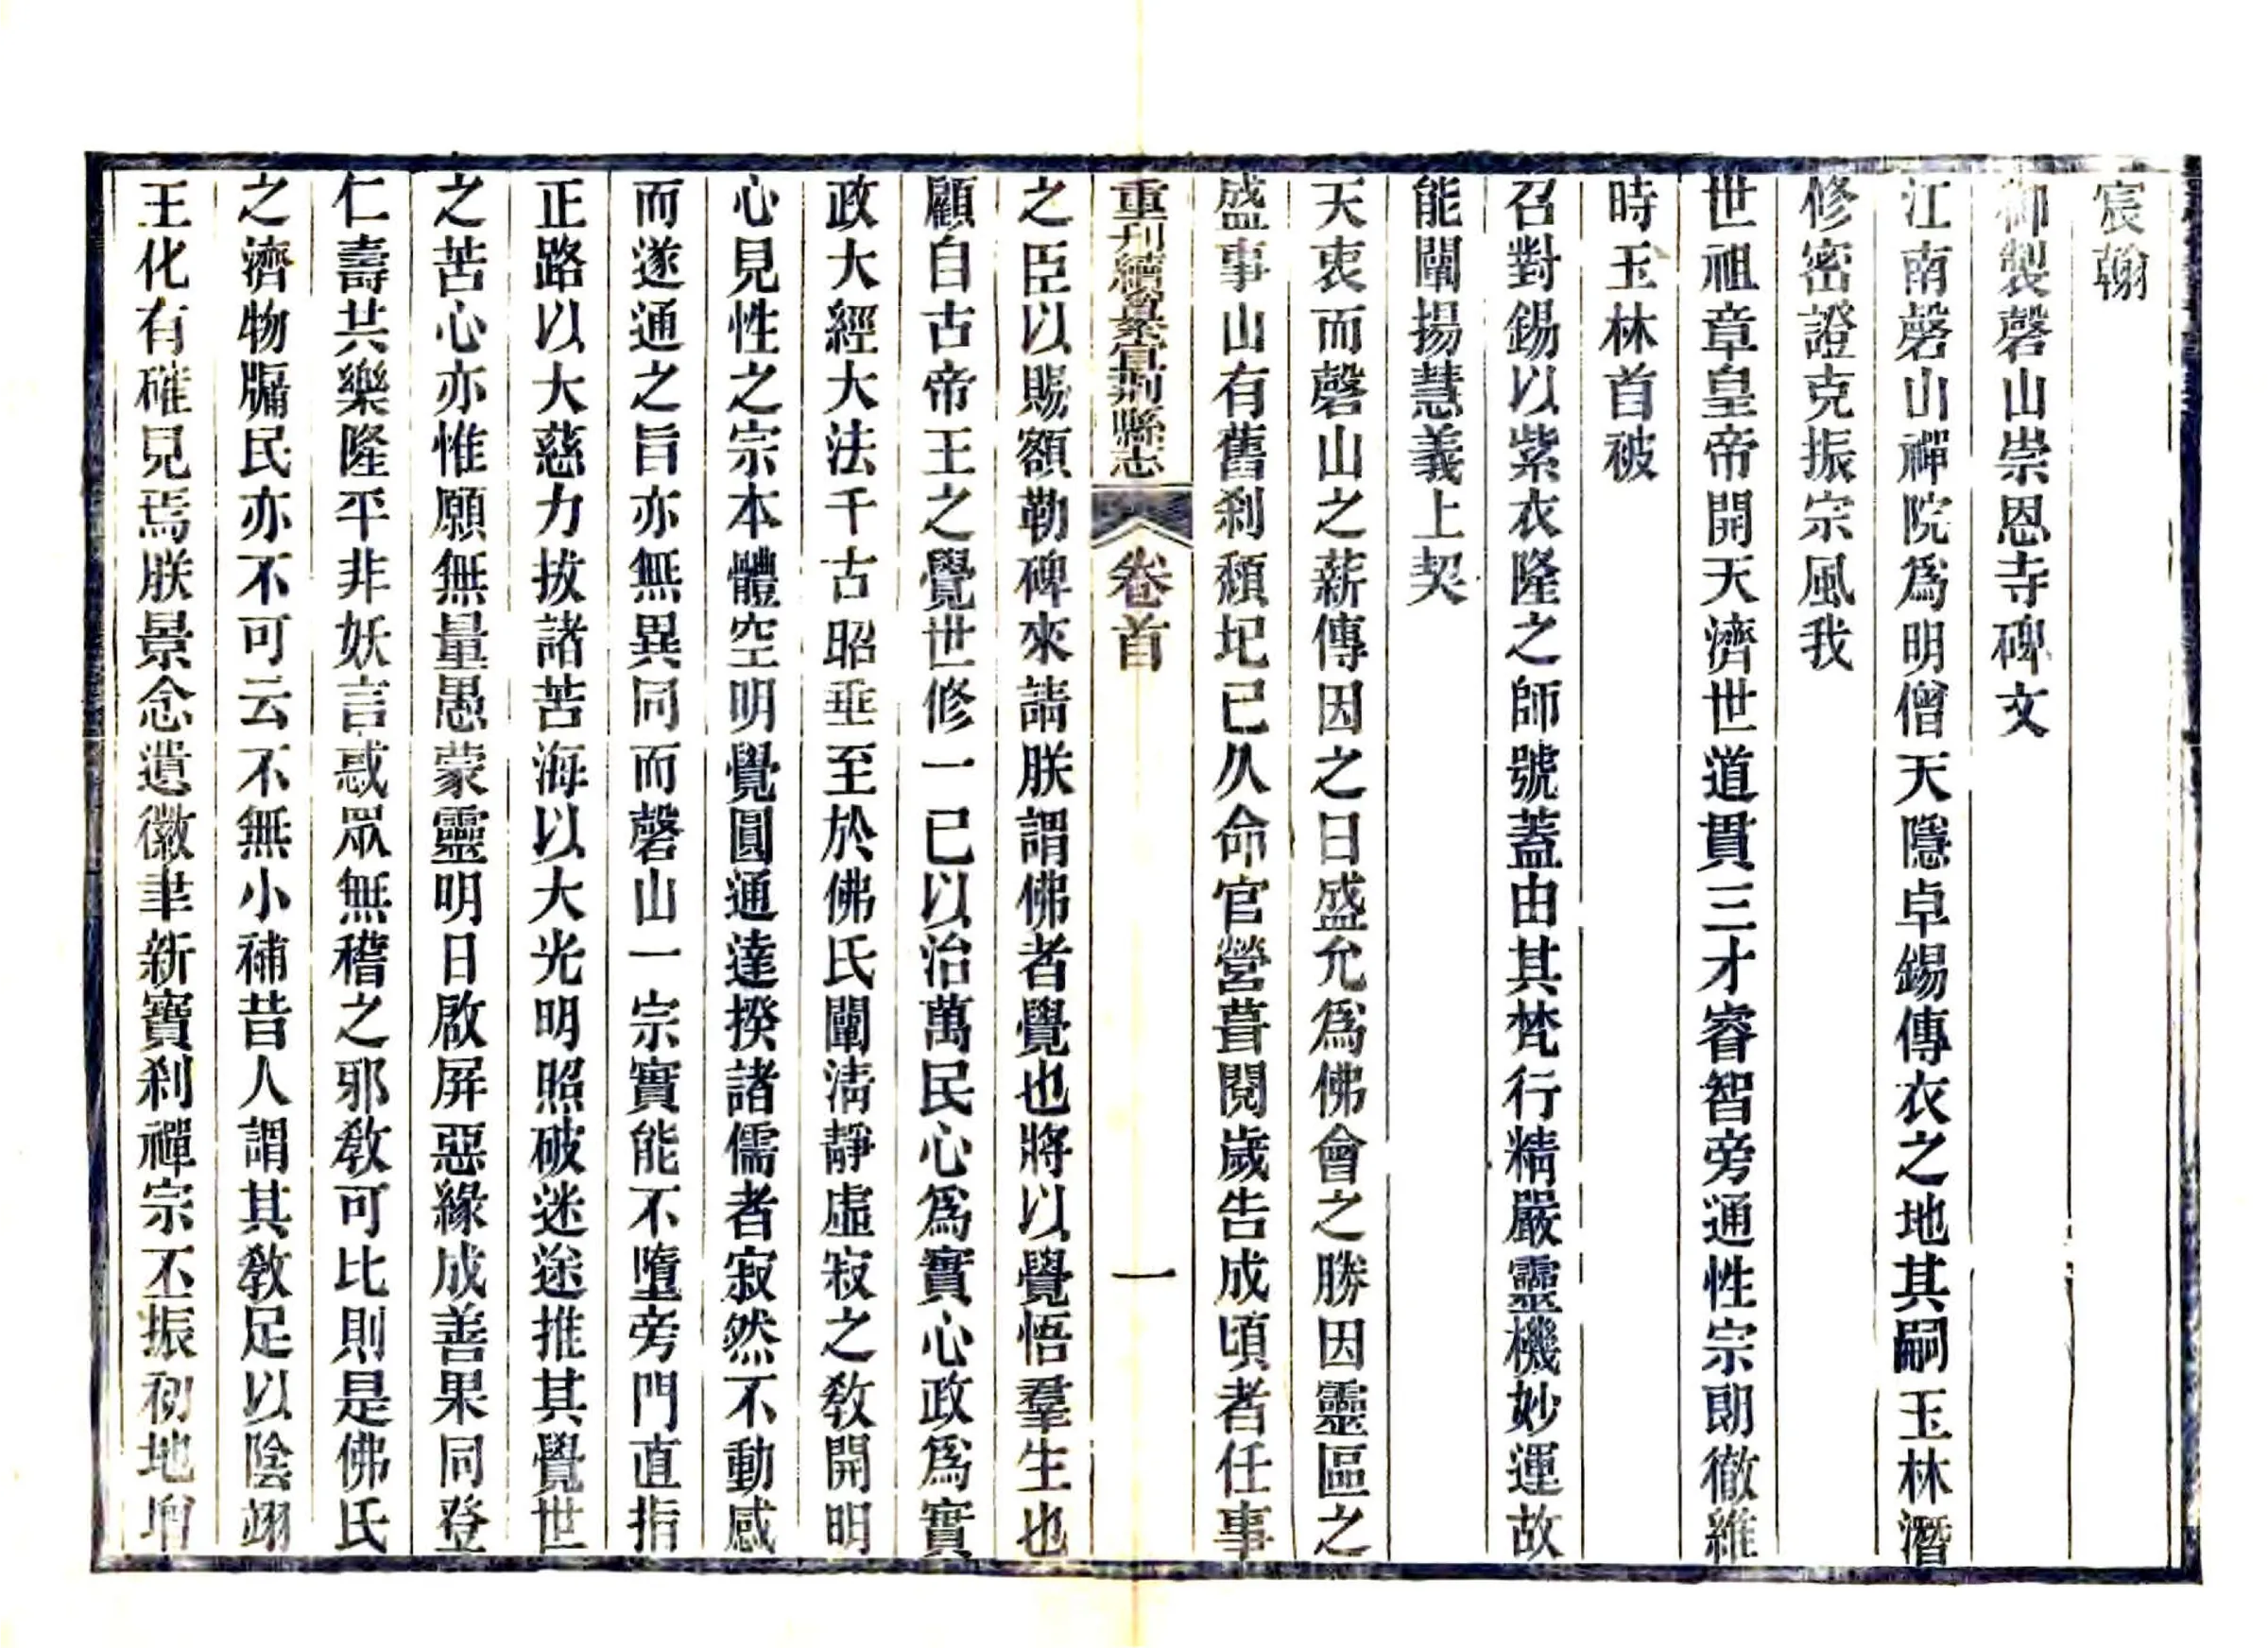 宸翰
御製磬山崇恩寺碑文
江南磬山禪院爲明僧天隱卓錫傳衣之地其嗣玉林潛
修密證克振宗風我
世祖章皇帝開天濟世道貫三才睿智旁通性宗朗徹維
時玉林首被
召對錫以紫衣隆之師號蓋由其梵行精嚴靈機妙運故
能闡揚慧義上契
天衷而磬山之薪傳因之日盛允爲佛會之勝因靈區之
盛事山有舊刹頹圮已久命官營葺閱歲告成頃者任事
重刊續纂宜荊縣志 卷首 一
之臣以賜額勒碑來請朕謂佛者覺也將以覺悟羣生也
顧自古帝王之覺世修一已以治萬民心爲實心政爲實
政大經大法千古昭垂至於佛氏闡淸靜虛寂之敎開明
心見性之宗本體空明覺圓通達揆諸儒者寂然不動感
而遂通之旨亦無異同而磬山一宗實能不墮旁門直指
正路以大慈力拔諸苦海以大光明照破迷途推其覺世
之苦心亦惟願無量愚蒙靈明日啟屏惡緣成善果同登
仁壽共樂隆平非妖言惑眾無稽之邪敎可比則是佛氏
之濟物牖民亦不可云不無小補昔人謂其敎足以陰翊
王化有確見焉朕景念遺徽聿新寶刹禪宗丕振初地增